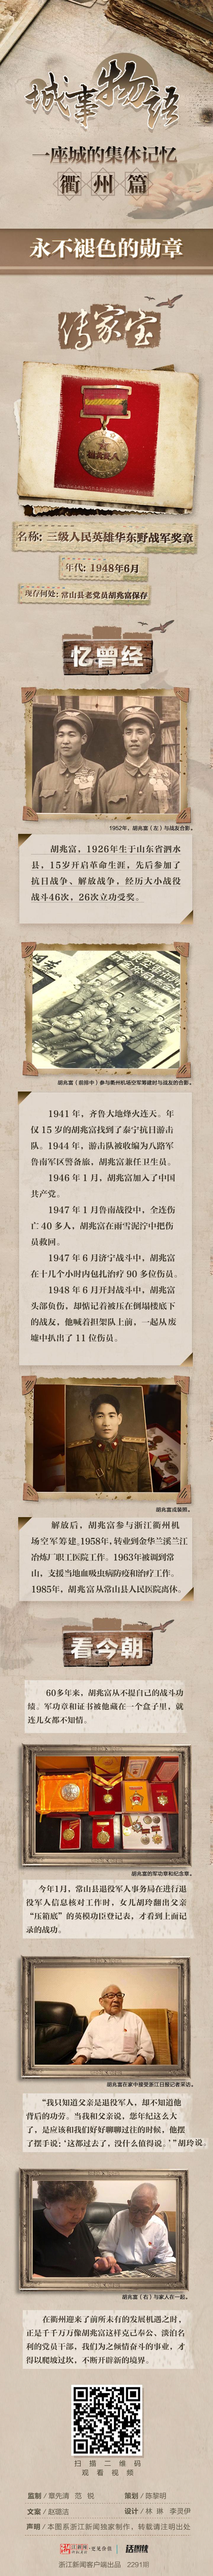 城事物语
一座城的集体记忆
衢州篇
永不褪色的勋章
传家宝
名称：三级人民英雄华东野战军奖章
年代：1948年6月
现存何处：常山县老党员胡兆富保存
忆曾经
1952年，胡兆富（左）与战友合影。
胡兆富，1926年生于山东省泗水
县，15岁开启革命生涯，先后参加了
抗日战争、解放战争，经历大小战役
战斗46次，26次立功受奖。
胡兆富（前排中）参与衢州机场空军筹建时与战友的合影。
1941年，齐鲁大地烽火连天。年
仅15岁的胡兆富找到了泰宁抗日游击
队。1944年，游击队被收编为八路军
鲁南军区警备旅，胡兆富兼任卫生员。
1946年1月，胡兆富加入了中国
共产党。
1947年1月鲁南战役中，全连伤
亡40多人，胡兆富在雨雪泥泞中把伤
员救回。
1947年6月济宁战斗中，胡兆富
在十几个小时内包扎治疗90多位伤员。
1948年6月开封战斗中，胡兆富
头部负伤，却惦记着被压在倒塌楼底下
的战友，他喊着担架队上前，一起从废
墟中扒出了11位伤员。
胡兆富戎装照。
解放后，胡兆富参与浙江衢州机
场空军筹建。1958年，转业到金华兰溪兰江
冶炼厂职工医院工作。1963年被调到常
山，支援当地血吸虫病防疫和治疗工作。
1985年，胡兆富从常山县人民医院离休。
看今朝
60多年来，胡兆富从不提自己的战斗功
绩。军功章和证书被他藏在一个盒子里，就
连儿女都不知情。
胡兆富的军功章和纪念章。
今年1月，常山县退役军人事务局在进行退
役军人信息核对工作时，女儿胡玲翻出父亲
“压箱底”的英模功臣登记表，才看到上面记
录的战功。
胡兆富在家中接受浙江日报记者采访。
“我只知道父亲是退役军人，却不知道他
背后的功劳。当我和父亲说，您年纪这么大
了，是应该和我们好好聊聊过往的时候，他摆
了摆手说：‘这都过去了，没什么值得说。’”胡玲说。
胡兆富（右）与家人在一起。
在衢州迎来了前所未有的发展机遇之时，
正是千千万万像胡兆富这样克己奉公、淡泊名
利的党员干部，我们为之倾情奋斗的事业，才
得以爬坡过坎，不断开辟新的境界。
扫描二维码
观看视频
监制／章先清 范锐
策划／陈黎明
文案／赵璐洁
设计／林琳 李灵伊
声明／本图系浙江新闻独家制作，转载请注明出处
浙江新闻 更有价值
浙江新闻客户端出品 2291期